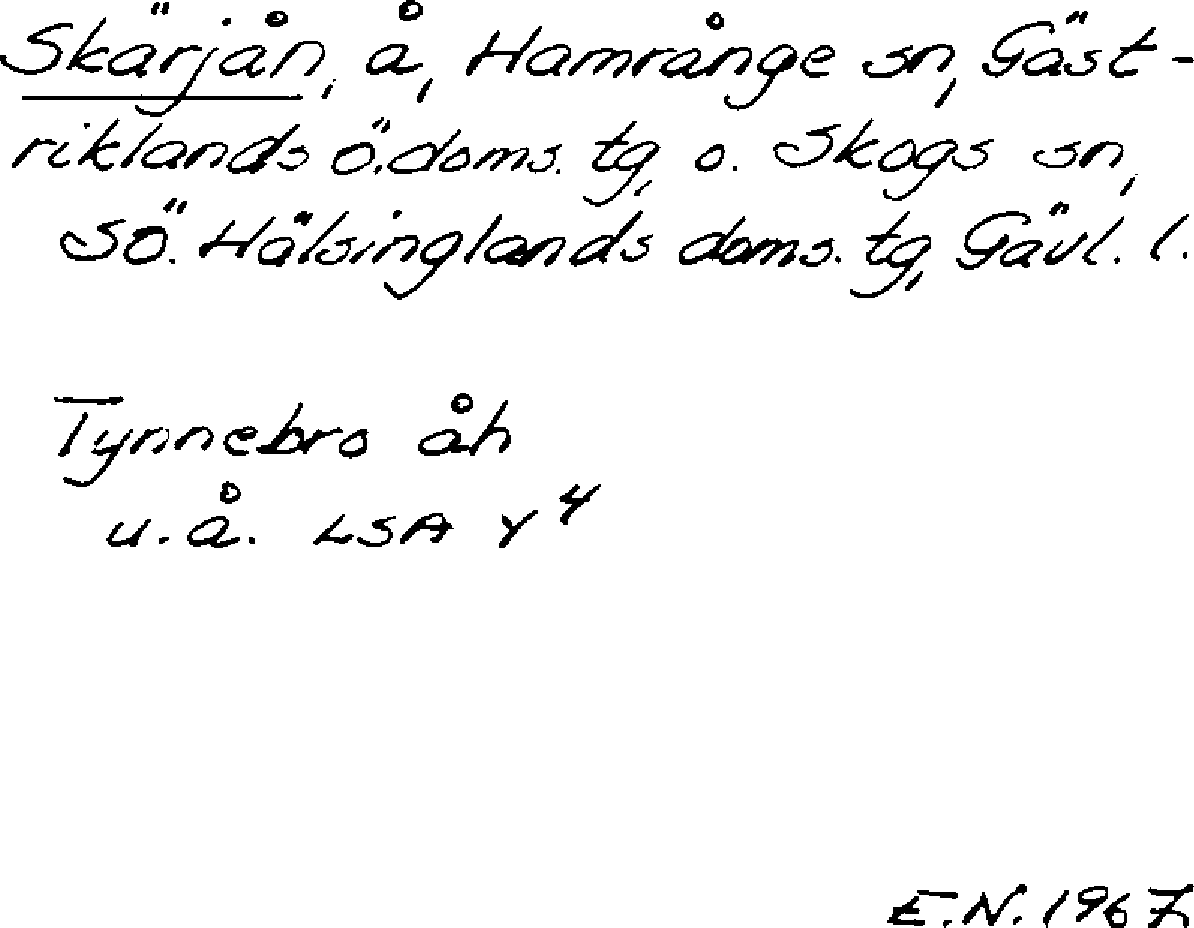 Skärjån, å, Hamrånge sn, Gäst-
riklands ö. doms. tg, o. Skogs sn,
SÖ. Hälsinglands doms. tg, Gävl. l.
Tynnebro åh
u.å. LSA Y 4
E.N. 1967